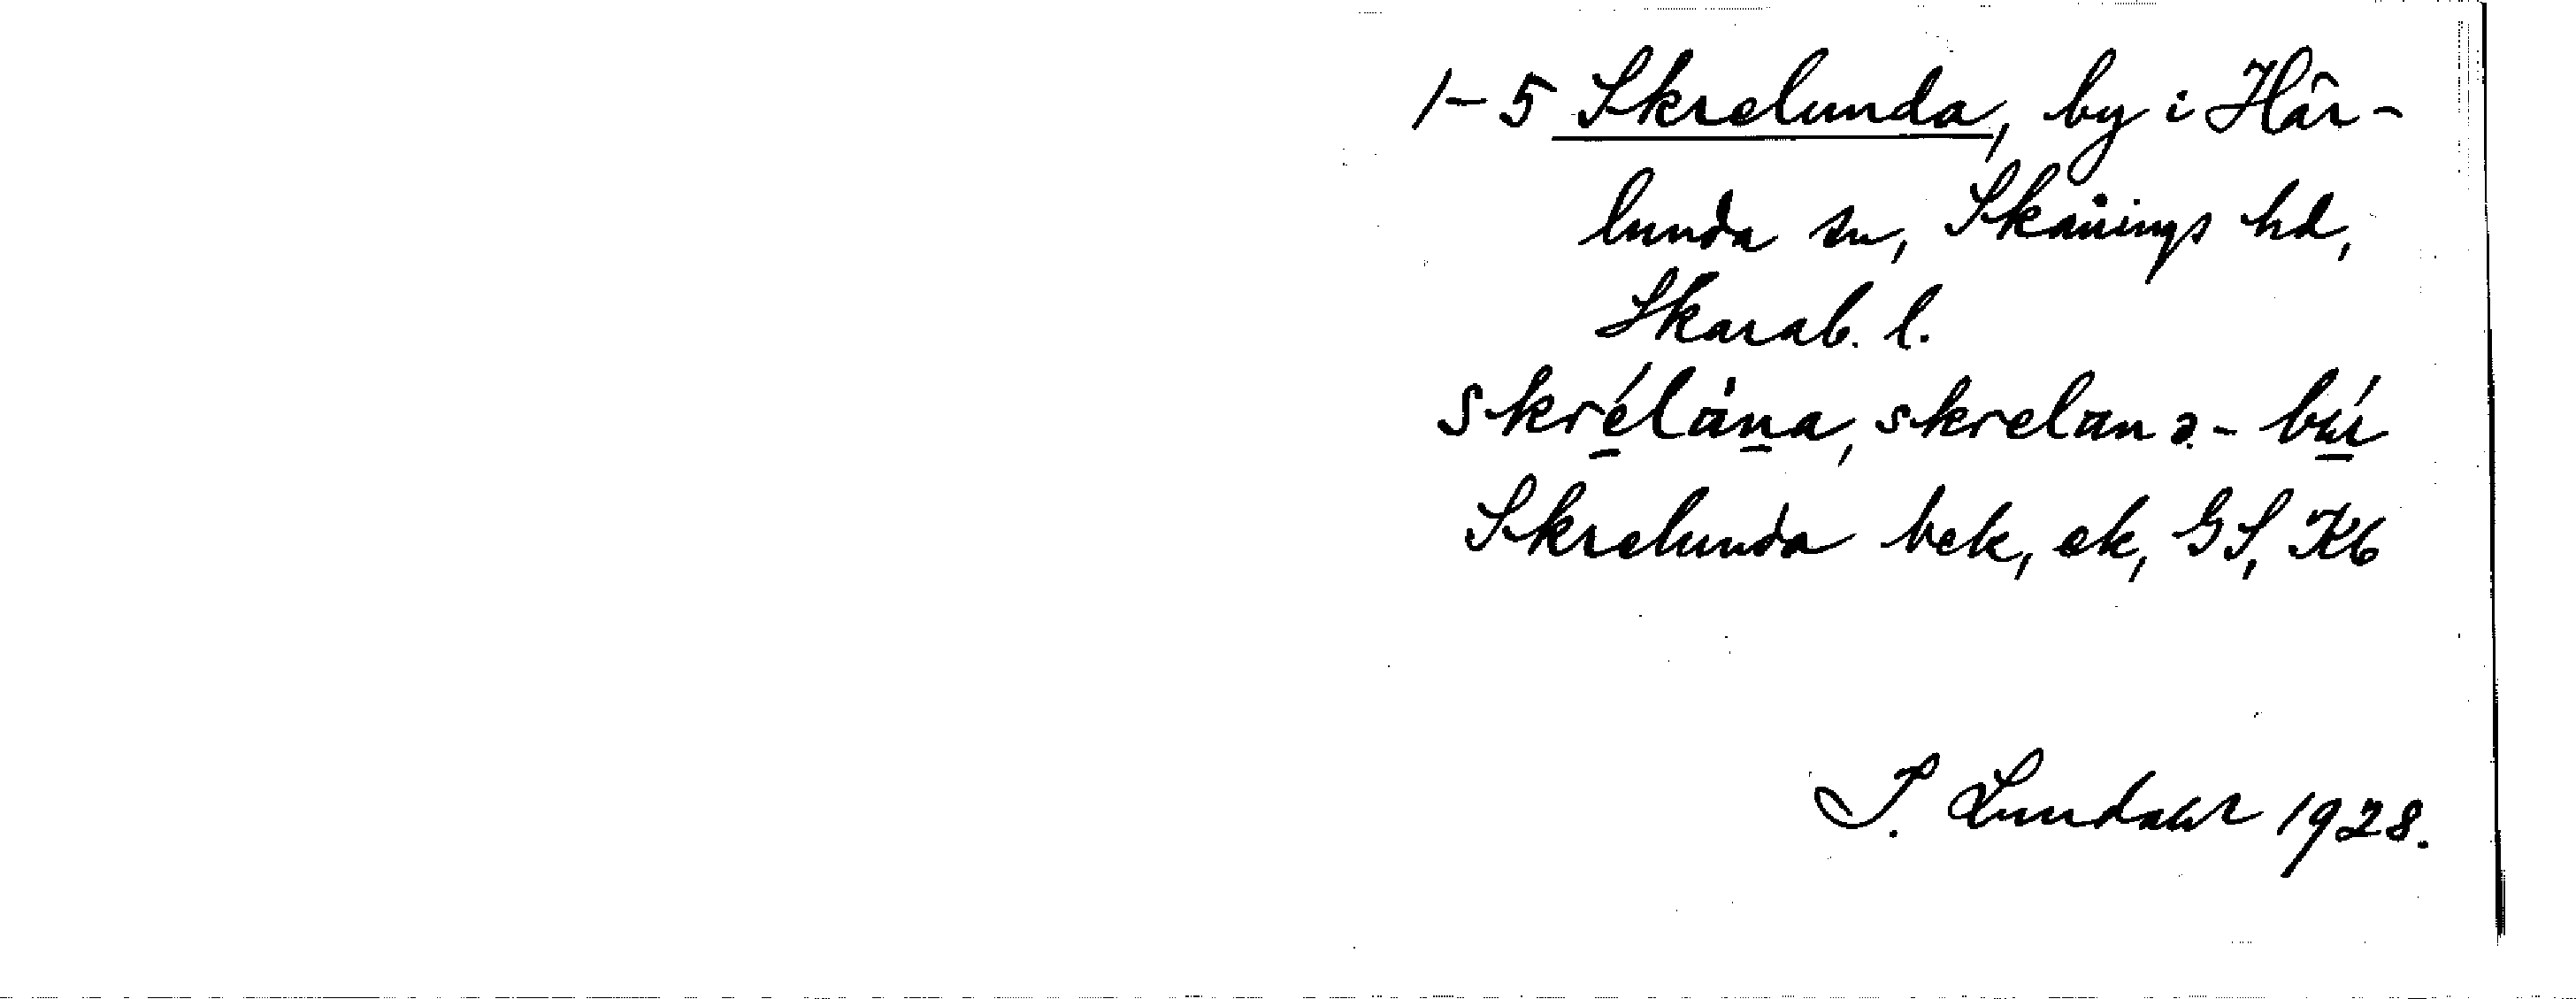 1-5 Skrelunda, by i Här-
lunda sn, Skånings hd,
Skarab. l.
skrélàna, skrelanə-búr
Skrelunda bek, ek, GS, Kb
I. Lundahl 1928.